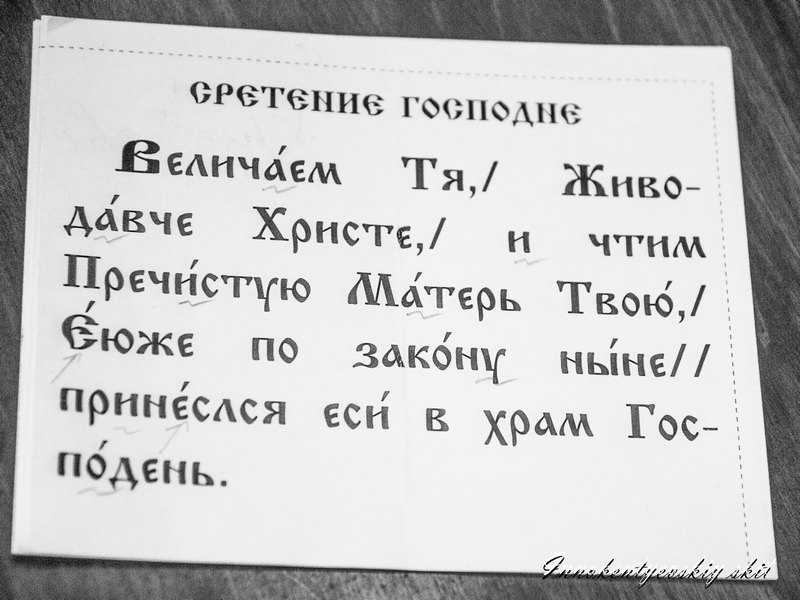 СРЕТЕНИЕ ГОСПОДНЕ
Велича́ем Тя,/ Живо-
да́вче Христе,/ и чтим
Пречи́стую Ма́терь Твою́,/
Е́юже по зако́ну ны́не//
прине́слся еси́ в храм Гос-
по́день.
Innokentyevskiy skit